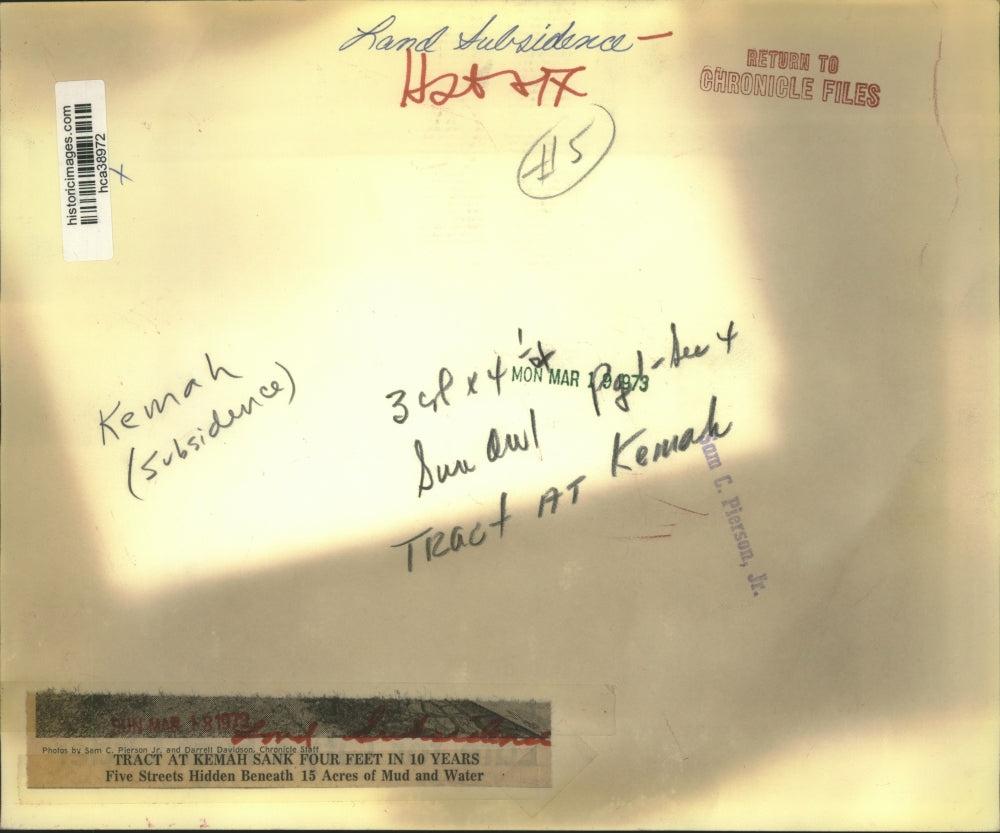 Land Subsidence -
Hst + TX
RETURN TO
CHRONICLE FILES
#5
historicimages.com
hca38972
X
Kemah
(Subsidence)
3 col x 4
MON MAR 19 1973
Sec 4
Sun
TRACT AT Kemah
Sam C. Pierson, Jr.
SUN MAR 18 1973
Land Subsidence
Photos by Sam C. Pierson Jr. and Darrell Davidson, Chronicle Staff
TRACT AT KEMAH SANK FOUR FEET IN 10 YEARS
Five Streets Hidden Beneath 15 Acres of Mud and Water